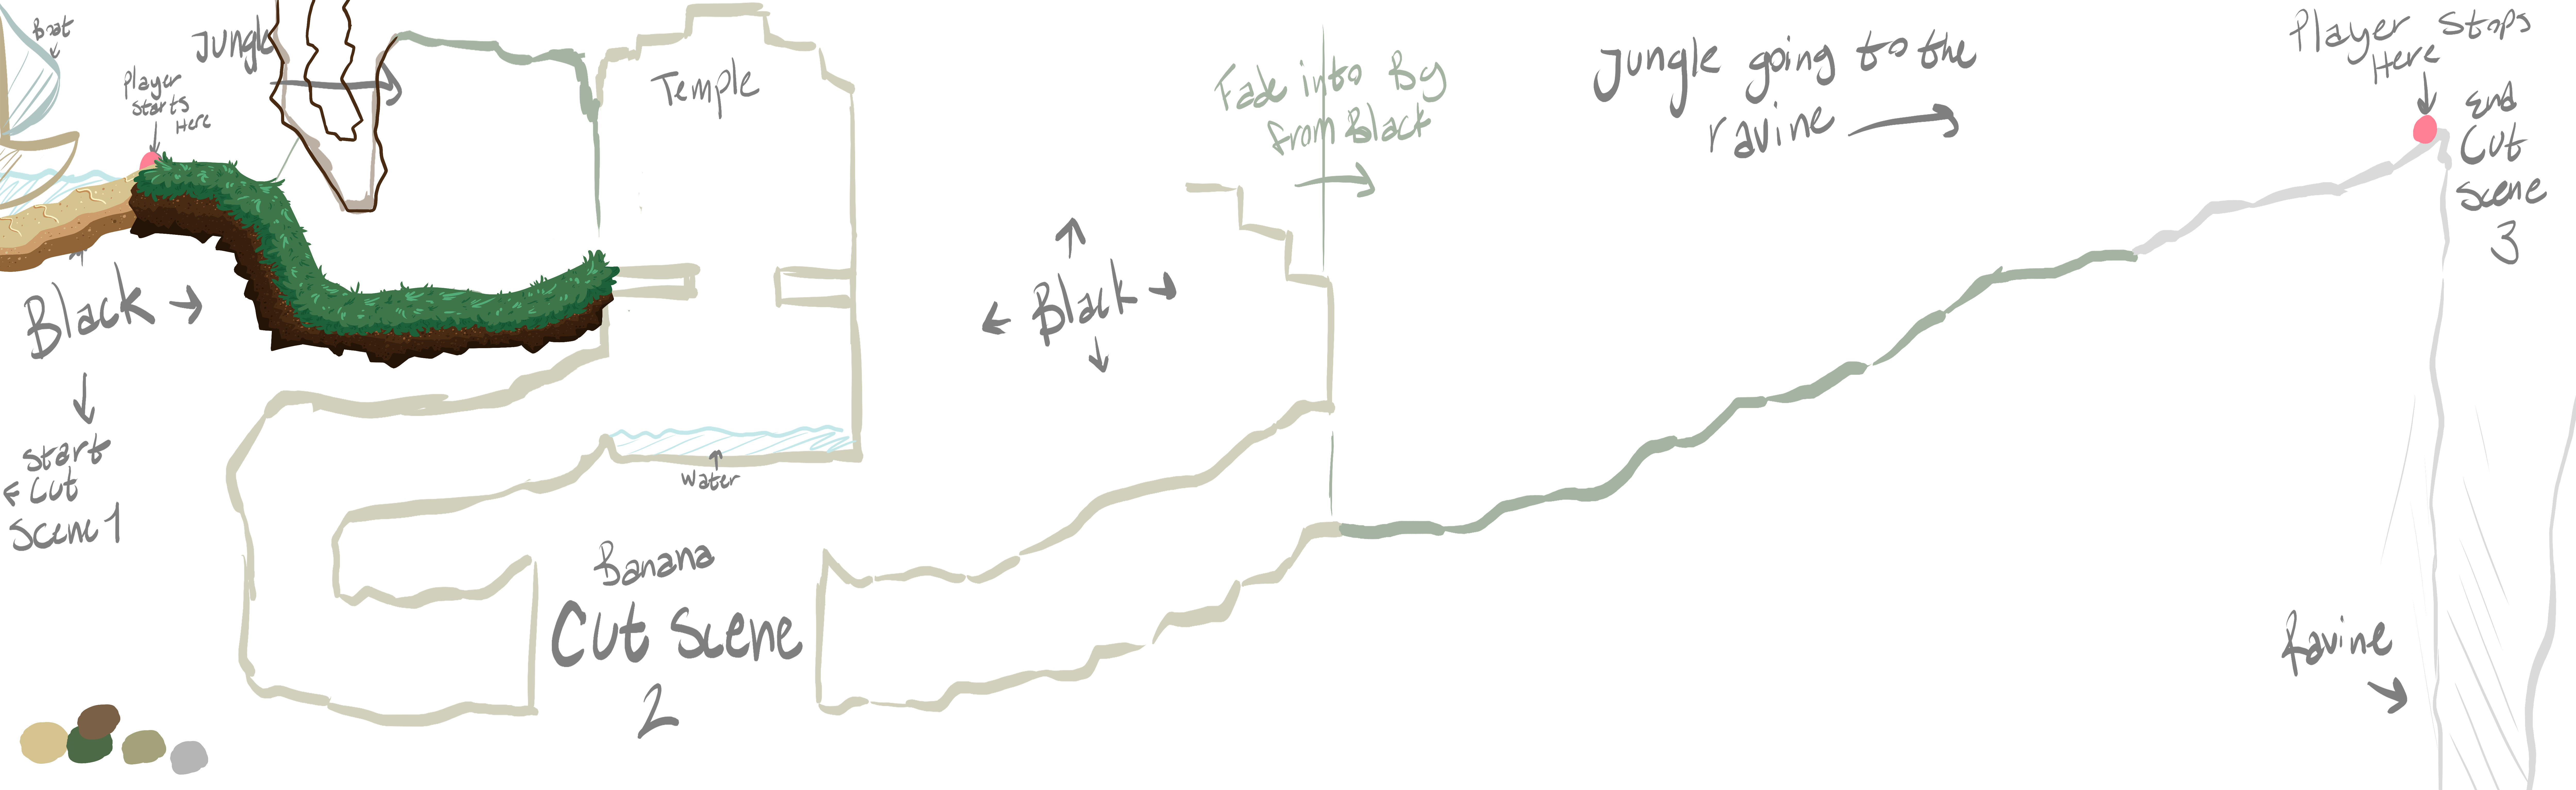 Boat
Jungle
Player
Starts
Here
Temple
Fade into Bg
from Black
Jungle going to the
ravine
Player Stops
Here
End
Cut
Scene
3
Black
Black
Start
Cut
Scene 1
Water
Banana
Cut Scene
2
Ravine